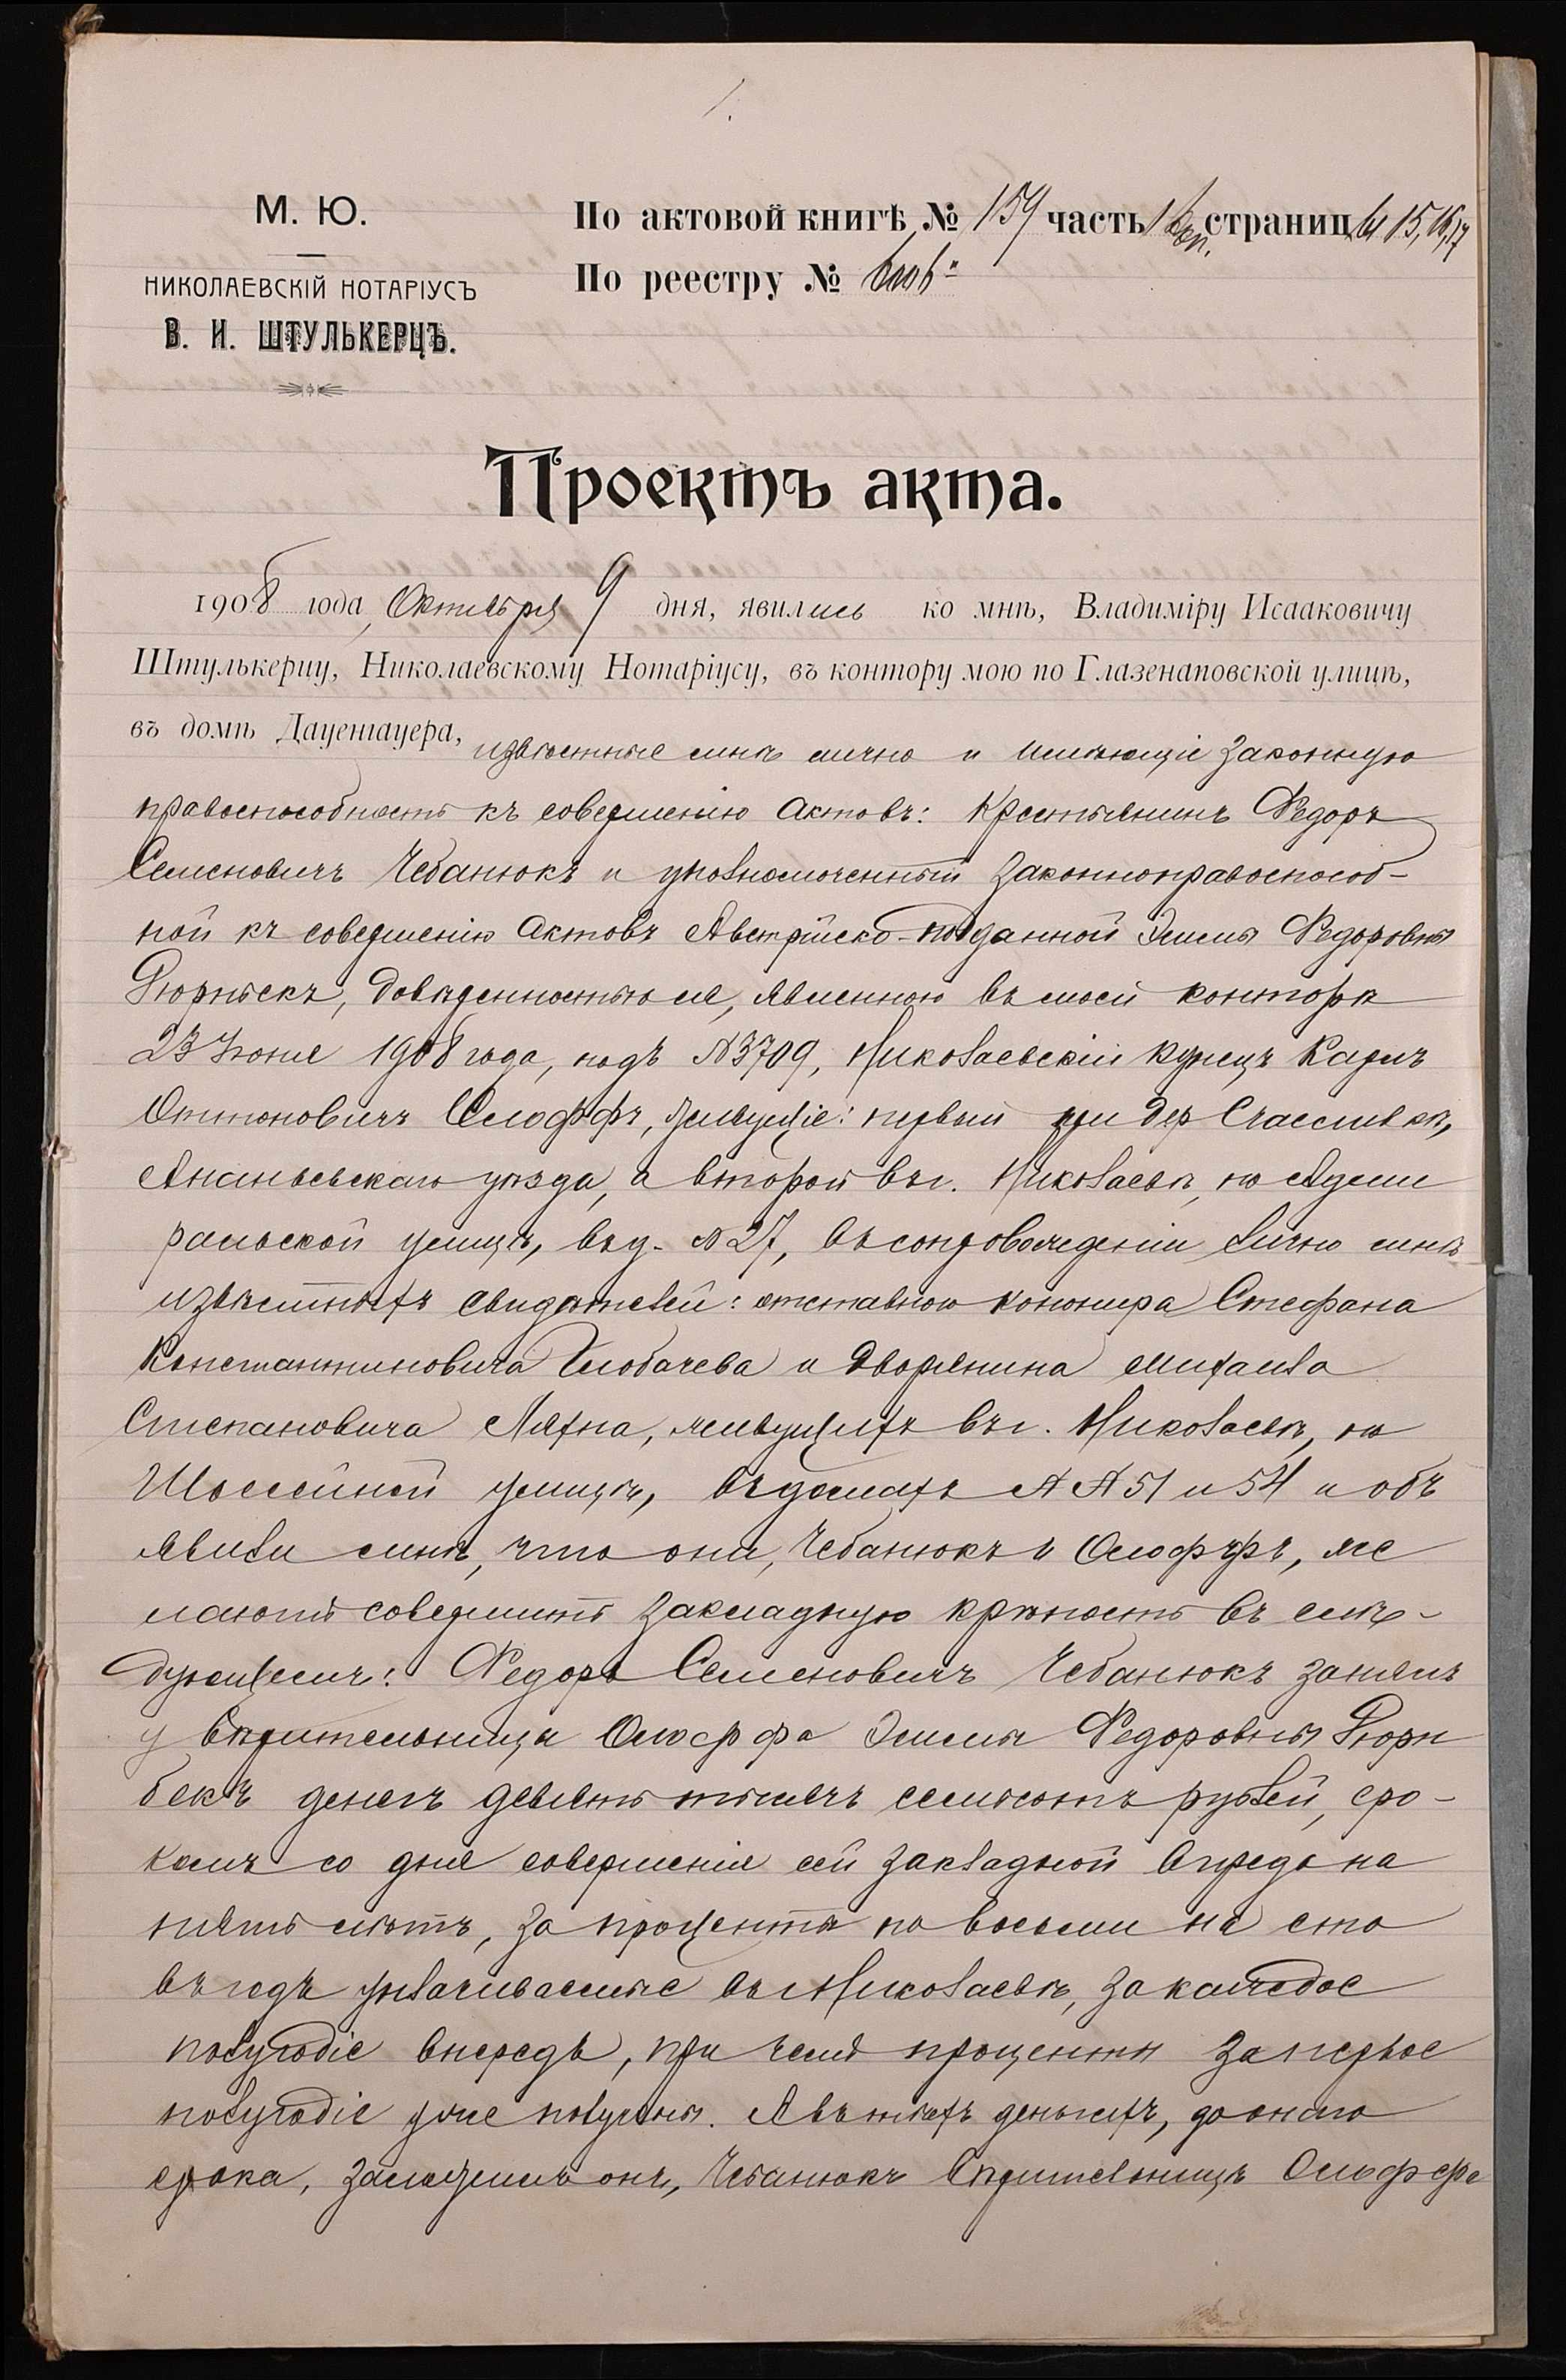 1.
М. Ю.
НИКОЛАЕВСКІЙ НОТАРІУСЪ
В. И. ШТУЛЬКЕРЦЪ.
По актовой книгѣ № 159 часть 1 страницы 15, 16, 17
По реестру №
Проектъ акта.
1908 года, Октября 9 дня, явились ко мнѣ, Владиміру Исааковичу
Штулькерцу, Николаевскому Нотаріусу, въ контору мою по Глазенаповской улицѣ,
въ домѣ Дауенгауера, извѣстные мнѣ лично и имѣющіе законную
правоспособность къ совершенію актовъ: Крестьянинъ Ѳедоръ
Семеновичъ Чебанюкъ и уполномоченный законноправоспособ-
ной къ совершенію актовъ Австрійско-подданной Эмиліи Ѳедоровны
довѣренностью ея, явленною въ моей конторѣ
23 Іюня 1908 года, подъ №3709, Николаевскій купецъ Карлъ
Оттоновичъ Олофъфъ, живущіе: первый при дер Счасливкѣ,
Ананьевскаго уѣзда, а второй въ г. Николаевѣ, по Адми
ральской улицѣ, въ д. № 27, въ сопровожденіи лично мнѣ
извѣстныхъ свидѣтелей: отставного канонира Стефана
Константиновича Глобачева и дворянина Михаила
Степановича Ляхна, живущихъ въ г. Николаевѣ, по
Шоссейной улицѣ, въ домахъ №№ 51 и 54 и объ
явили мнѣ, что они, Чебанюкъ и Олофъфъ, же
лаютъ совершить закладную крѣпость въ слѣ-
дующемъ: Ѳедоръ Семеновичъ Чебанюкъ занялъ
у вѣрительницы Олофъфа Эмиліи Ѳедоровны Рюрн
бекъ денегъ девять тысячъ семьсотъ рублей, сро-
комъ со дня совершенія сей закладной впредь на
пять лѣтъ, за проценты по восьми на сто
въ годъ уплачиваемые въ Николаевѣ, за каждое
полугодіе впередъ, при чемъ проценты за первое
полугодіе уже получены. А въ тѣхъ деньгахъ, до онаго
срока, заложилъ онъ, Чебанюкъ вѣрительницѣ Олофъфа